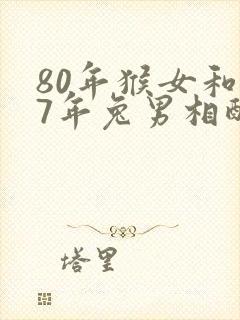 80年猴女和
7年兔男相配
塔里